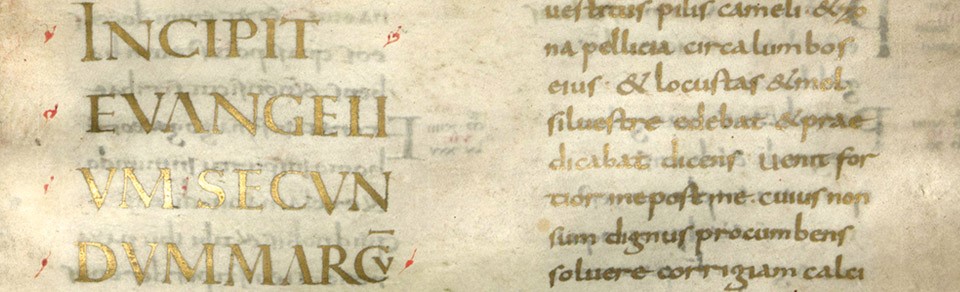 INCIPIT
EVANGELI
VM SECVN
DVM MARCV̅
uestitus pilis cameli & zo
na pellicia circa lumbos
eius · & locustas & mel
siluestre edebat · & prae
dicabat dicens · Uenit for
tior me post me · cuius non
sum dignus procumbens
soluere corrigiam calci